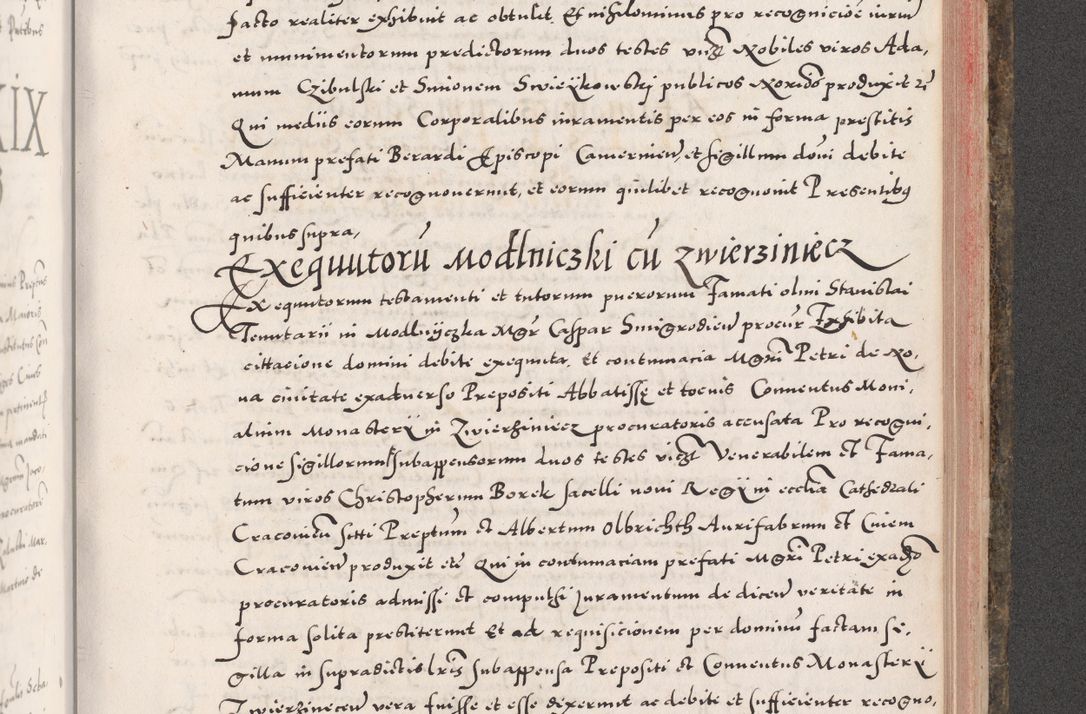 facto realiter exhibuit ac obtulit. Et nihilominus pro recognicioē iurium
et munimentorum predictorum duos testes vidz Nobiles viros Ada,
mum Czibulski et Simonem Swieÿkowskj publicos Norios produxit
Qui mediis eorum Corporalibus iuramentis per eos in forma prestitis
Manum prefati Berardi Episcopi Camerinen, et sigillum domi debite
ac sufficienter recognouerunt, et eorum quilibet recognouit Presentibq
quibus supra,
Exequutorū Modlniczki cū zwierziniecz
Exequutorum testamenti et tutorum puerorum Famati olim Stanislai
Tenutarii in Modlnyczka Mgr Caspar Smigrodien procur Exhibita
cittacione domini debite exequuta, Et contumacia Mgri Petri de No,
ua ciuitate ex aduerso Prepositi Abbatissę et tocius Conuentus Moni,
alium Monasterÿ in Zwierziniecz procuratoris accusata Pro recogni,
cione sigillorum subappensorum duos testes vidzt Venerabilem et Fama,
tum viros Christopherum Borek sacelli noui Regÿ in eccliā Cathedrali
Cracouien siti Preptum et Albertum Olbrichth Aurifabrum et Ciuem
Cracouien produxit etc Qui in contumaciam prefati Mgri Petri ex ado
procuratoris admissi et compulsi juramentum de dicen veritate in
forma solita prestiterunt Et ad requisicionem per dominū factam si,
gilla in supradictis lris subappensa Prepositi et Conuentus Monasterÿ
Zwierzinecen vera fuisse et esse dixerunt ac debite et sufficienter recogno,